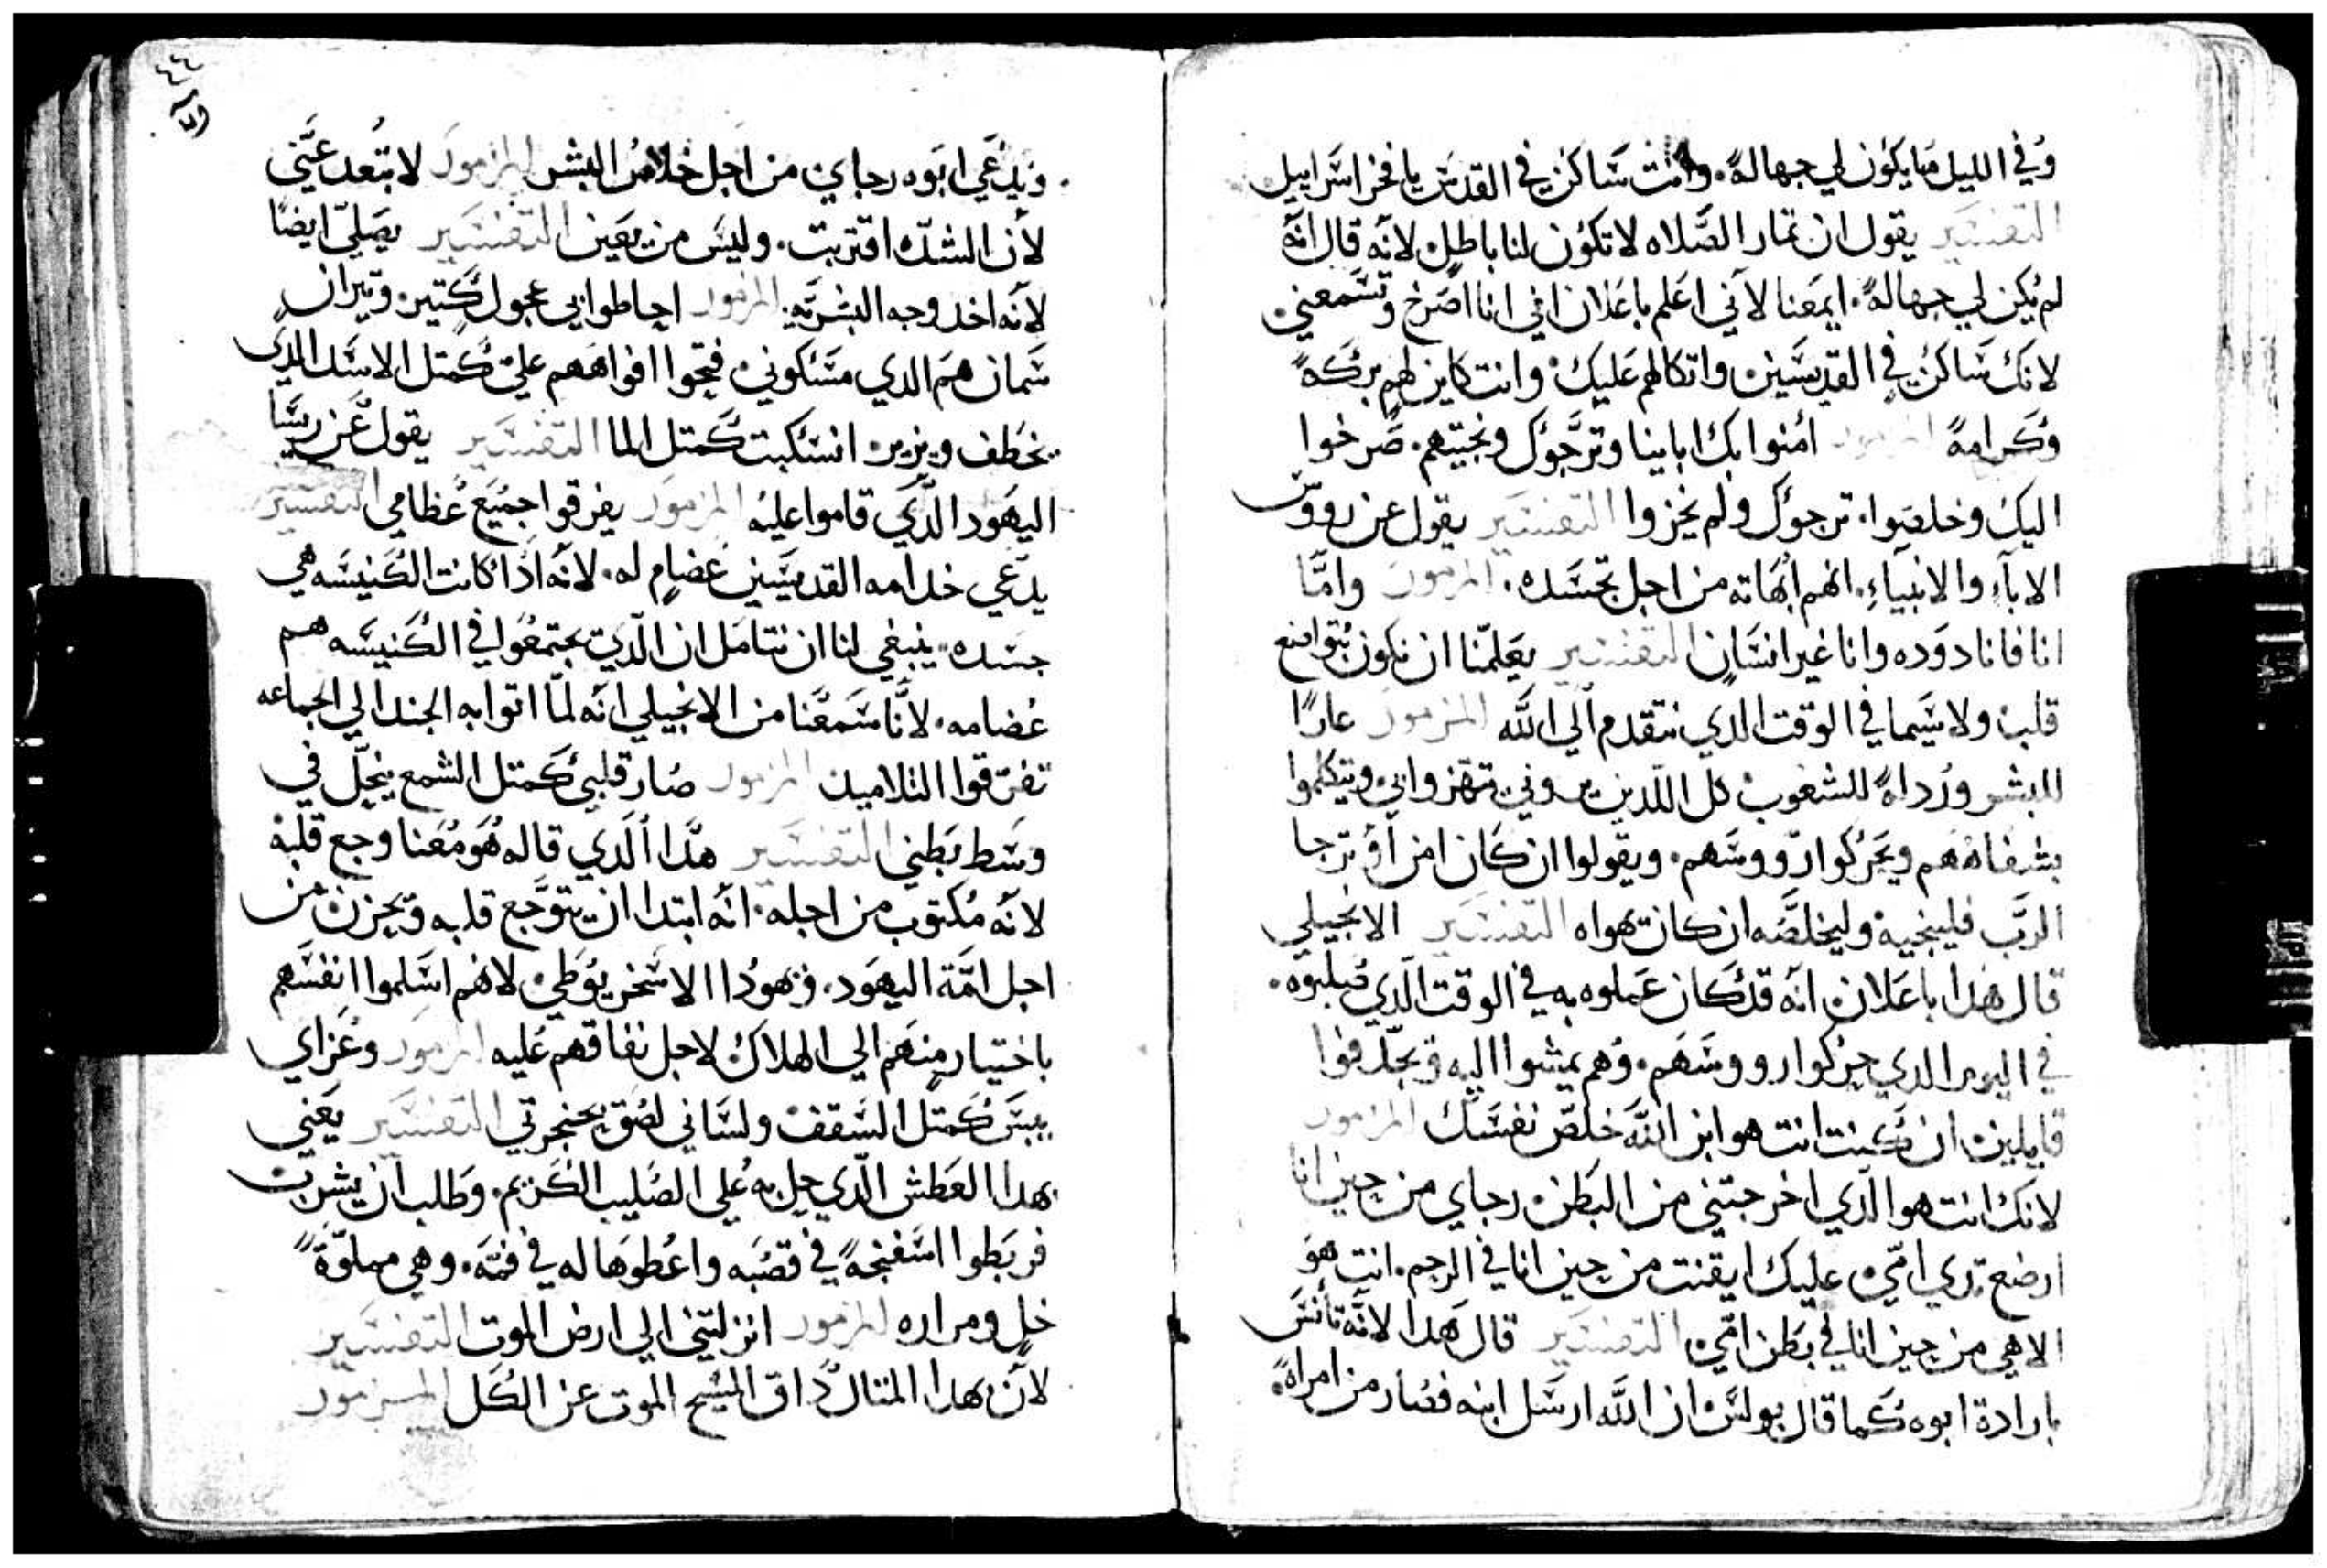 وفي الليل ما يكون لي جهالة. وانت ساكن في القدس يا فخر اسراييل
التفسير يقول ان تمار الصلاه لا تكون لنا باطل لانه قال انه
لم يكن لي جهالة. ايمعنا لاني اعلم باعلان اني انا اصرخ وتسمعني
لانك ساكن في القديسين واتكالهم عليك وانت كاين لهم بركة
وكرامة المزمور امنوا بك اباينا وترجوك ونجيتهم. صرخوا
اليك وخلصوا. ترجوك ولم يخزوا التفسير يقول عن رووس
الاباء والانبياء. انهم ابهاته من اجل تجسده. المزمور واما
انا فانا دوده وانا غير انسان التفسير يعلمنا ان نكون بتواضع
قلب ولا سيما في الوقت الدي نتقدم الي الله المزمور عارا
للبشر ورداة للشعوب كل اللدين يروني تهزوا بي ويتكلموا
بشفاههم ويحركوا رووسهم. ويقولوا ان كان امن او ترجا
الرب فلينجيه وليخلصه ان كان يهواه التفسير الانجيلي
قال هدا باعلان انه قد كان عملوه به في الوقت الدي صلبوه.
في اليوم الدي حركوا رووسهم. وهم يمشوا اليه ويجدفوا
قايلين ان كنت انت هو ابن الله خلص نفسك المزمور
لانك انت هو الدي اخرجتني من البطن رجاي من حين انا
ارضع تدي امي عليك ايقنت من حين انا في الرحم. انت هو
الاهي من حين انا في بطن امي التفسير قال هدا لانه تانس
بارادة ابوه كما قال بولس ان الله ارسل ابنه فصار من امراة.
ويدعي ابوه رجاي من اجل خلاص البشر المزمور لا تبعد عني
لان الشده اقتربت. وليس من يعين التفسير يصلي ايضا
لانه اخد وجه البشريه: المزمور احاطوا بي عجول كتير وتيران
سمان هم الدي مسكوني فتحوا افواههم علي كمتل الاسد الدي
يخطف ويزير انسكبت كمتل الما التفسير يقول عن ريسا
اليهود الدي قاموا عليه المزمور يفرقوا جميع عظامي التفسير
يدعي خدامه القديسين عضام له. لانه ادا كانت الكنيسه هي
جسده ينبغي لنا ان نتامل ان الدي يجتمعوا في الكنيسه هم
عضامه. لانا سمعنا من الانجيلي انه لما اتوا به الجند الي الجماعه
تفرقوا التلاميد المزمور صار قلبي كمتل الشمع ينحل في
وسط بطني التفسير هدا الدي قاله هو معنا وجع قلبه
لانه مكتوب من اجله. انه ابتدا ان يتوجع قلبه ويحزن من
اجل امة اليهود. ويهودا الاسخريوطي لانهم اسلموا انفسهم
باختيار منهم الي الهلاك لاجل نفاقهم عليه المزمور وعزاي
يبس كمتل السقف ولساني لصق بحنجرتي التفسير يعني
بهدا العطش الدي حل به علي الصليب الكريم. وطلب ان يشرب
فربطوا اسفنجة في قصبه واعطوها له في فمه. وهي مملوة
خل ومراره المزمور انزلتني الي ارض الموت التفسير
لان بهدا المتال داق المسيح الموت عن الكل المزمور